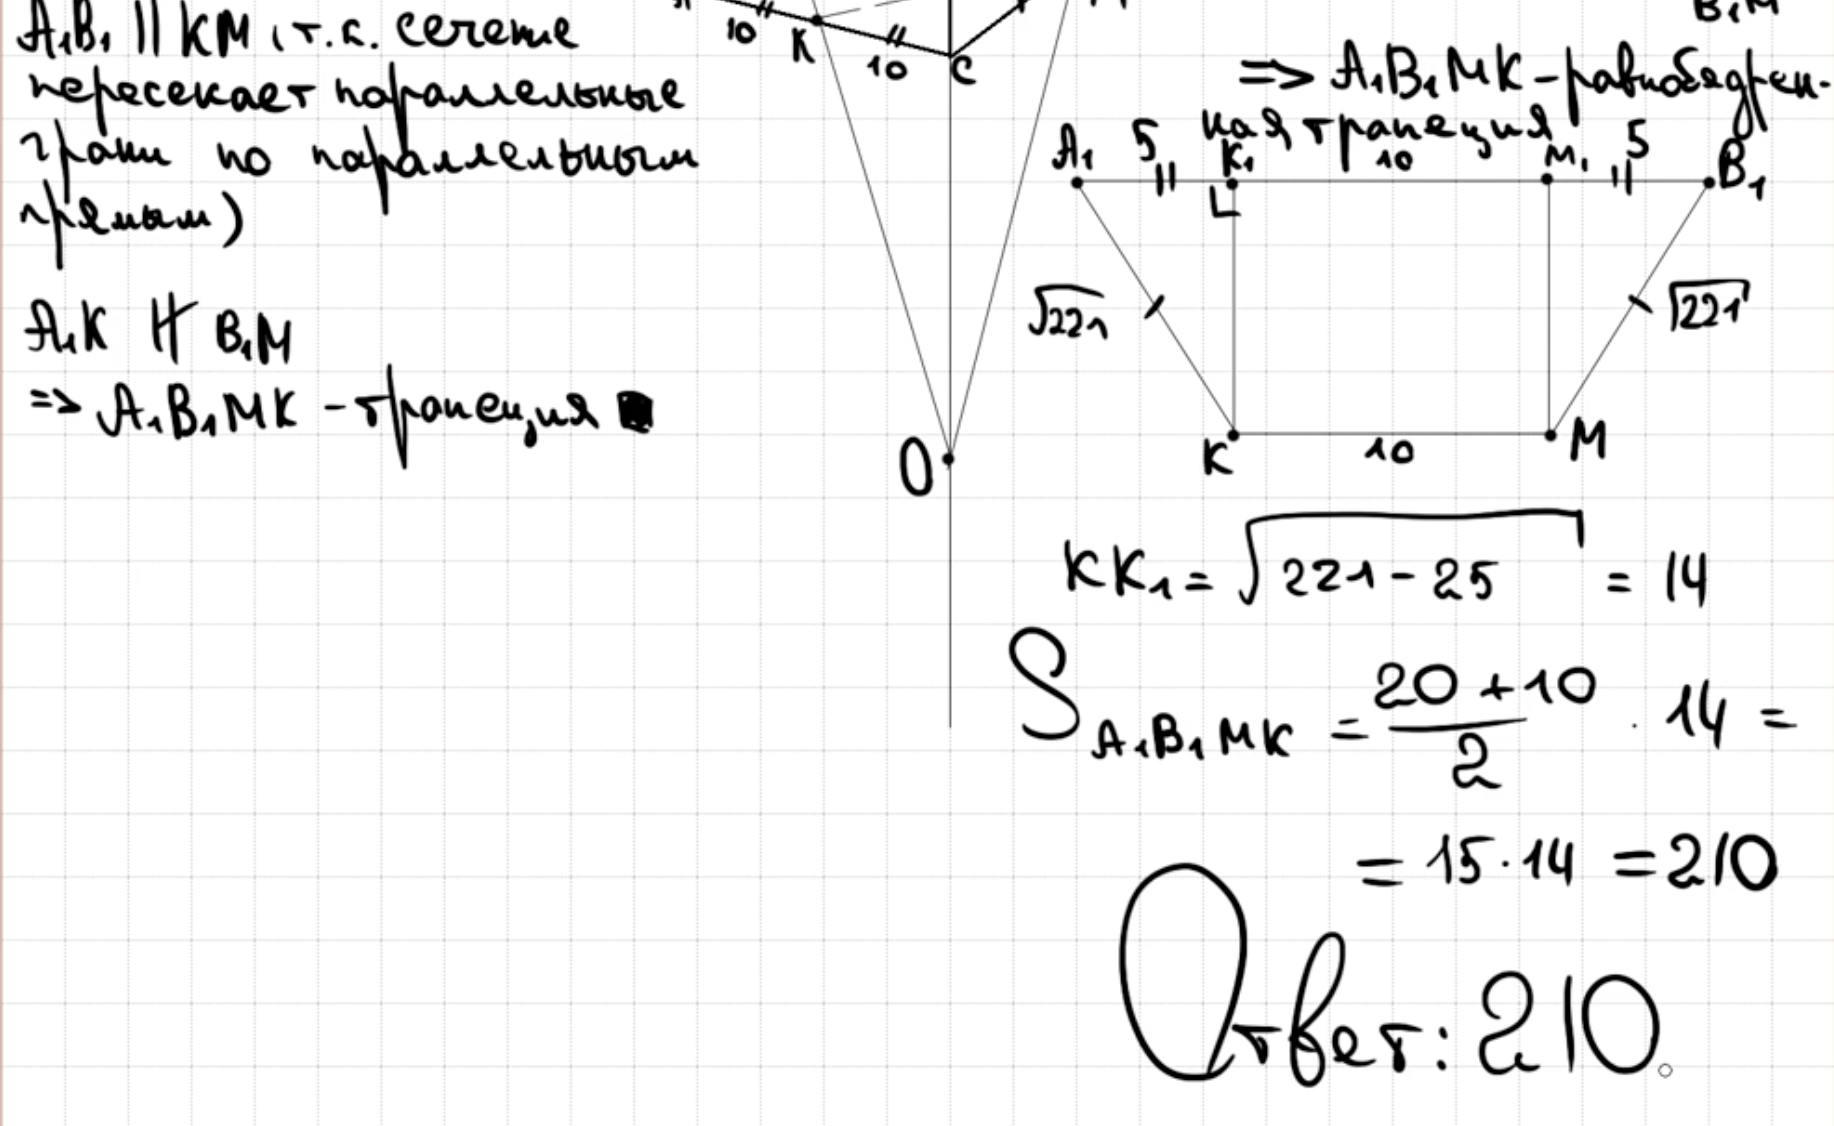 A₁B₁ || KM (т.к. сечение
пересекает параллельные
грани по параллельным
прямым)
A₁K ∦ B₁M
=> A₁B₁MK - трапеция
10
K
10
C
O
B₁M
=> A₁B₁MK - равнобедрен-
ная трапеция
A₁ 5 K₁ 10 M₁ 5 B₁
√221 √221
K 10 M
KK₁ = √221 - 25 = 14
S A₁B₁MK = (20 + 10)/2 · 14 =
= 15 · 14 = 210
Ответ: 210.